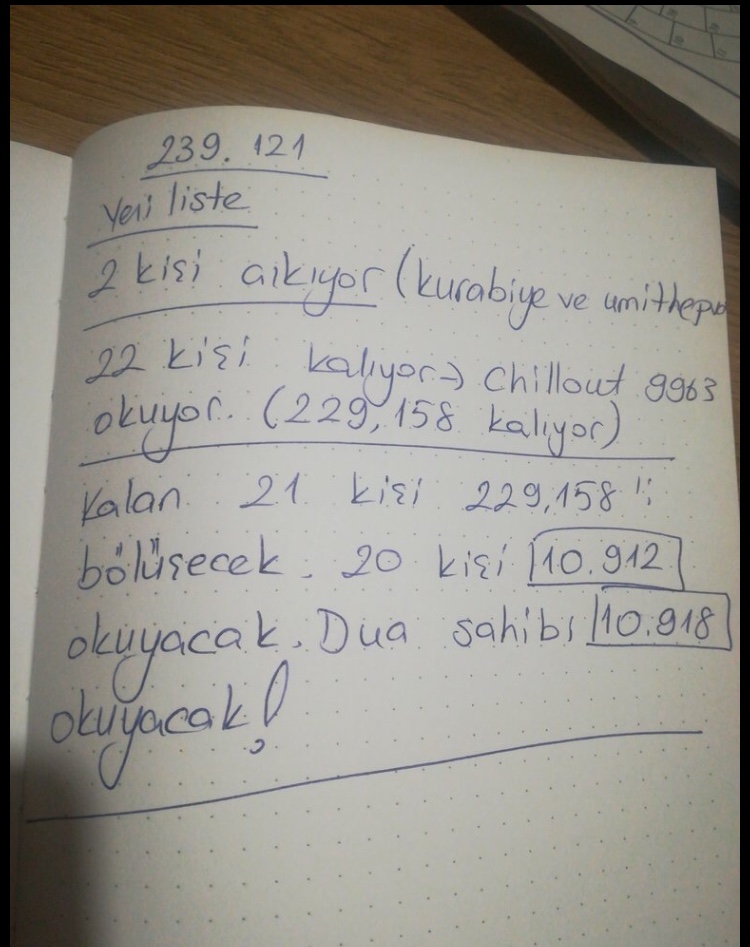 239.121
Yeni liste
2 kişi çıkıyor (kurabiye ve umithepvo
22 kişi kalıyor → Chillout 9963
okuyor. (229,158 kalıyor)
Kalan 21 kişi 229,158'i
bölüşecek. 20 kişi 10.912
okuyacak. Dua sahibi 10.918
okuyacak!